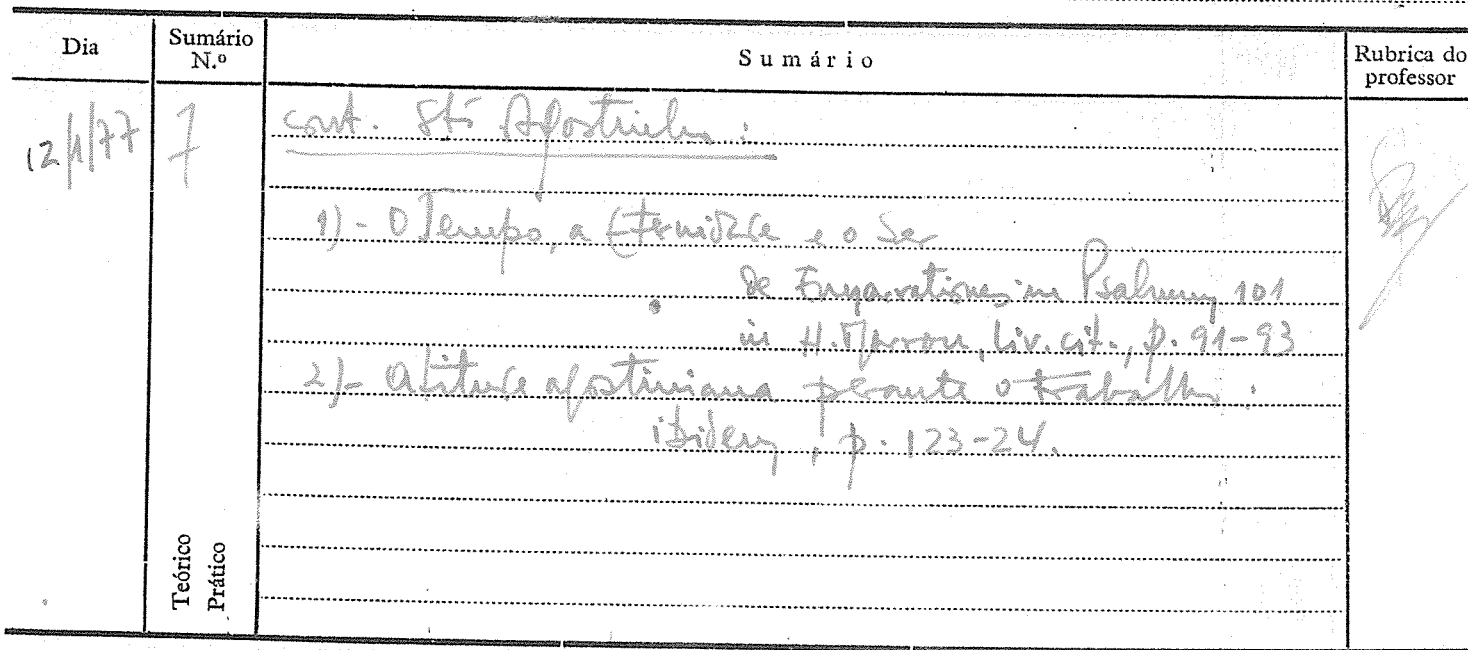 Dia
Sumário N.º
Sumário
Rubrica do professor
12/1/77
7
cont. Stº Agostinho:
1) - O Tempo, a Eternidade e o Ser
de Enarrationes in Psalmum 101
in H. Marrou, liv. cit., p. 91-93
2) - Atitude agostiniana perante o trabalho:
ibidem, p. 123-24.
Teórico
Prático